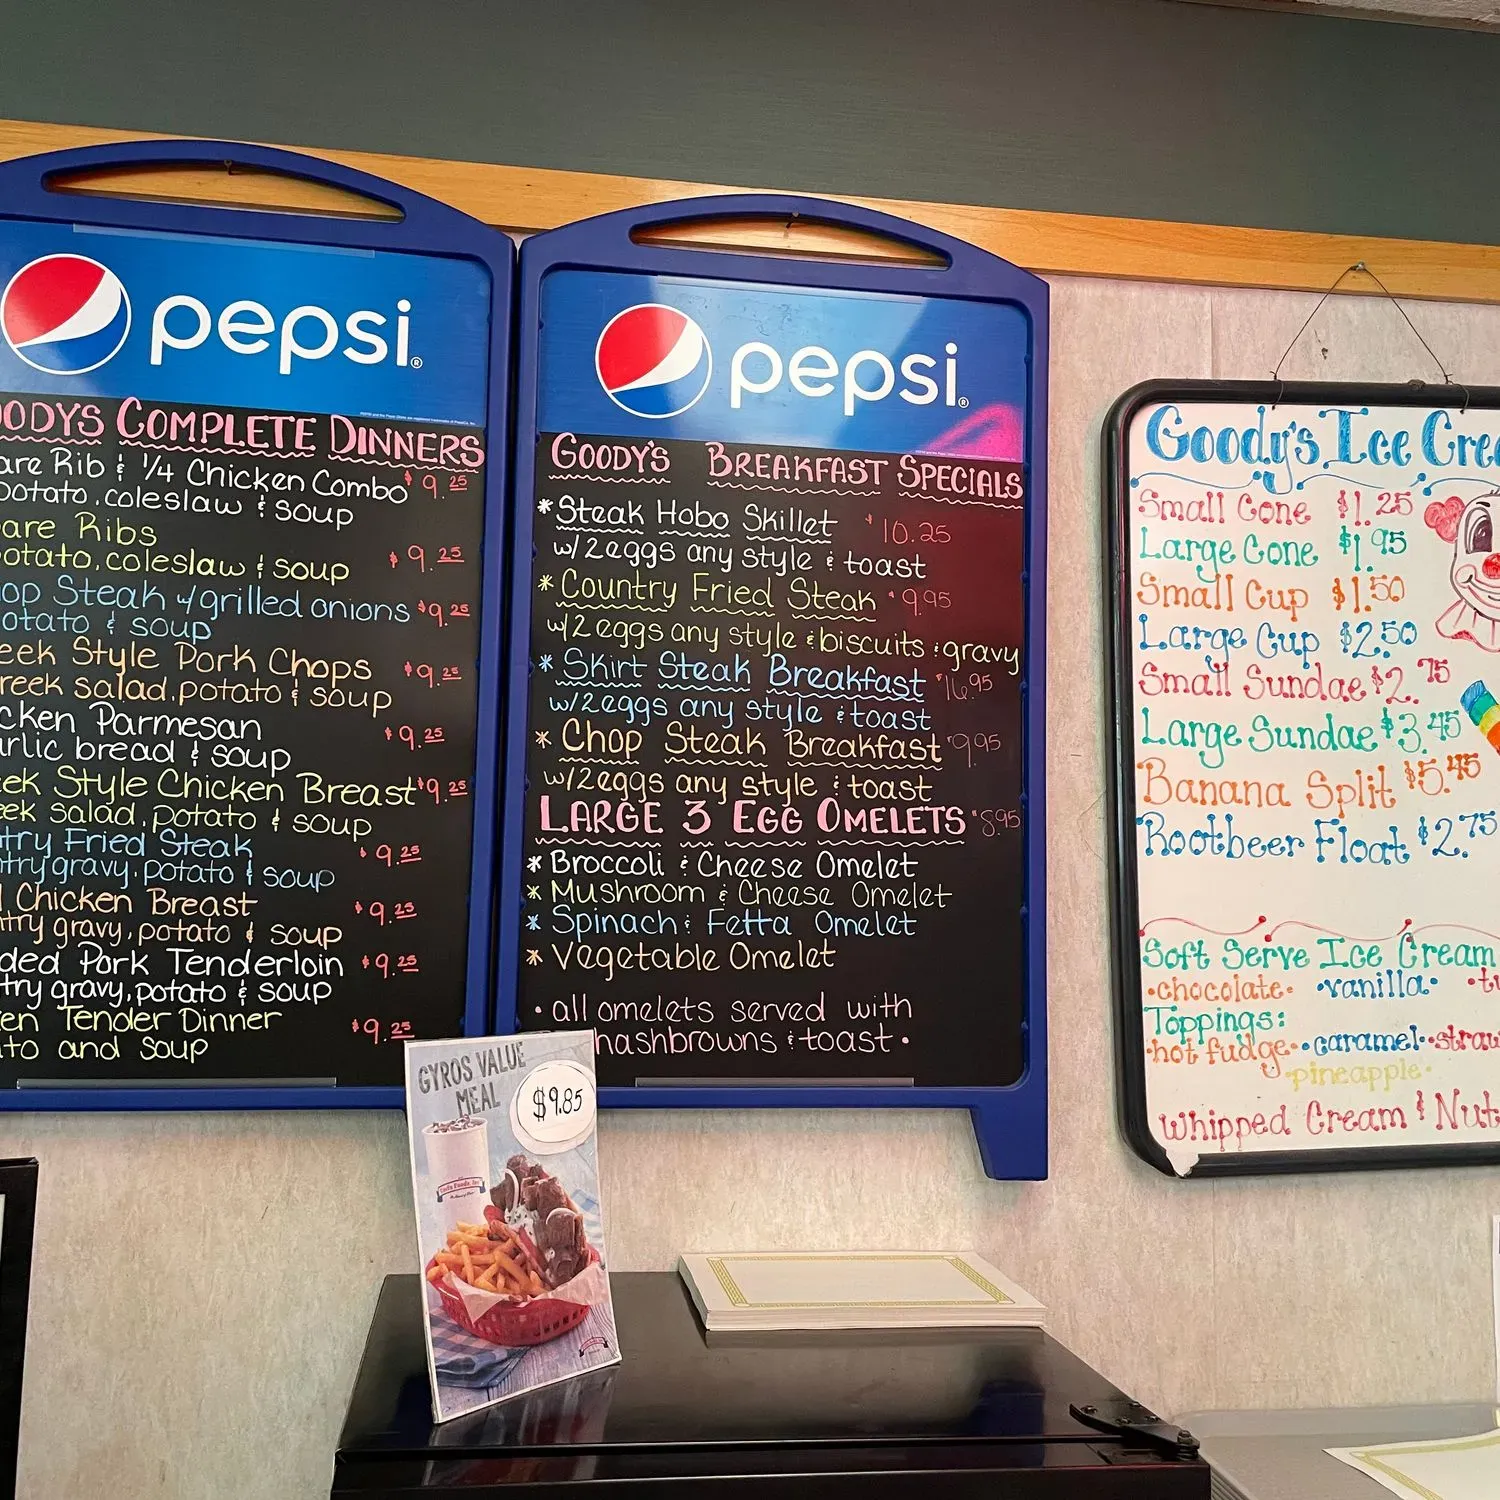 pepsi
OODYS COMPLETE DINNERS
are Rib & 1/4 Chicken Combo $9.25
potato, coleslaw & soup
are Ribs
potato, coleslaw & soup $9.25
hop Steak w/grilled onions $9.25
otato & soup
eek Style Pork Chops $9.25
reek salad, potato & soup
cken Parmesan $9.25
arlic bread & soup
ek Style Chicken Breast $9.25
eek salad, potato & soup
try Fried Steak $9.25
ntry gravy, potato & soup
Chicken Breast $9.25
ntry gravy, potato & soup
ded Pork Tenderloin $9.25
try gravy, potato & soup
en Tender Dinner $9.25
ato and soup
pepsi
GOODY'S BREAKFAST SPECIALS
* Steak Hobo Skillet $10.25
w/2eggs any style & toast
* Country Fried Steak $9.95
w/2 eggs any style & biscuits & gravy
* Skirt Steak Breakfast $16.95
w/2eggs any style & toast
* Chop Steak Breakfast $9.95
w/2eggs any style & toast
LARGE 3 EGG OMELETS $8.95
* Broccoli & Cheese Omelet
* Mushroom & Cheese Omelet
* Spinach & Fetta Omelet
* Vegetable Omelet
• all omelets served with
hashbrowns & toast •
GYROS VALUE
MEAL
$9.85
Goody's Ice Crea
Small Cone $1.25
Large Cone $1.95
Small Cup $1.50
Large Cup $2.50
Small Sundae $2.75
Large Sundae $3.45
Banana Split $5.45
Rootbeer Float $2.75
Soft Serve Ice Cream
•chocolate• •vanilla• •tw
Toppings:
•hot fudge• •caramel• •straw
•pineapple•
Whipped Cream & Nut